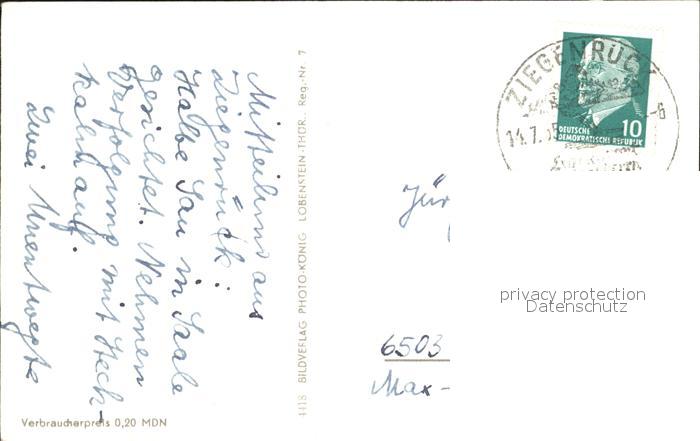 Mitteilung aus
Ziegenrück:
Halbe Sau in Saale
gesichtet. Nehmen
Verfolgung mit Steck-
kahn auf.
Zwei Unentwegte
Verbraucherpreis 0,20 MDN
4418 BILDVERLAG PHOTO-KÖNIG LOBENSTEIN-THÜR. Reg.-Nr. 7
ZIEGENRÜCK
14.7.65
-6
DEUTSCHE
DEMOKRATISCHE REPUBLIK
10
Jür
6503
Max-
privacy protection
Datenschutz